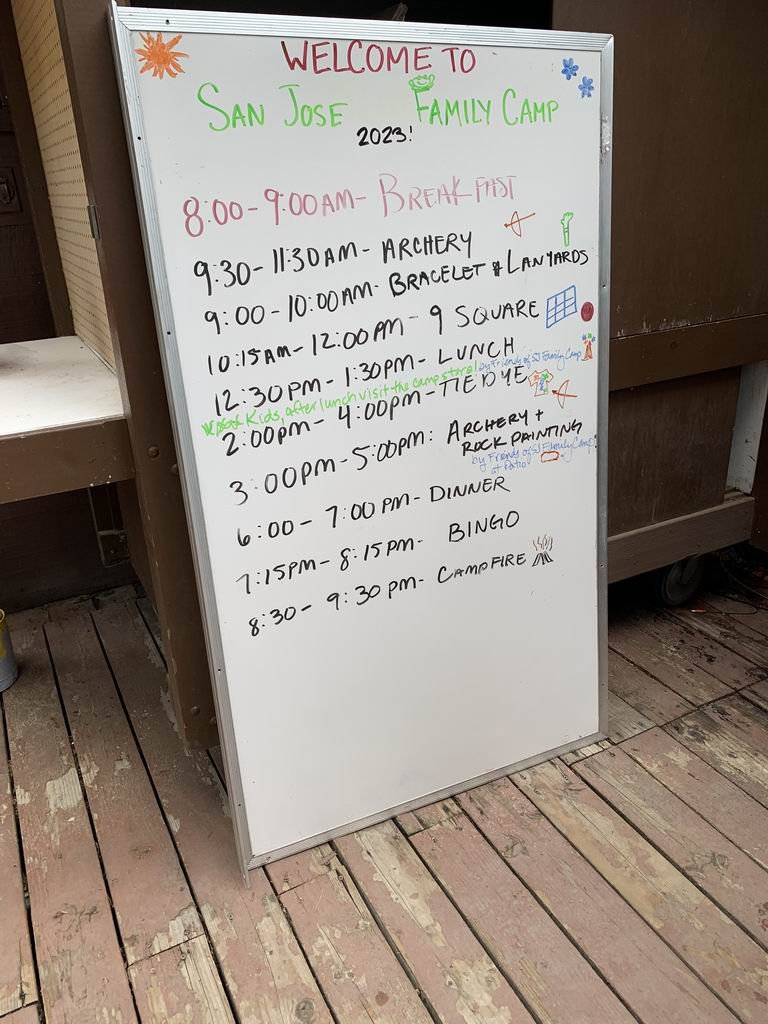 WELCOME TO
SAN JOSE FAMILY CAMP
2023!
8:00-9:00AM- BREAKFAST
9:30-11:30AM- ARCHERY
9:00-10:00AM- BRACELET & LANYARDS
10:15AM-12:00PM- 9 SQUARE
12:30PM-1:30PM- LUNCH
Kids, after lunch visit the camp store! by Friends of SJ Family Camp
2:00PM-4:00PM-TIE DYE
3:00PM-5:00PM: ARCHERY +
ROCK PAINTING
by Friends of SJ Family Camp!
at Patio
6:00-7:00PM-DINNER
7:15PM-8:15PM- BINGO
8:30-9:30PM- CAMPFIRE